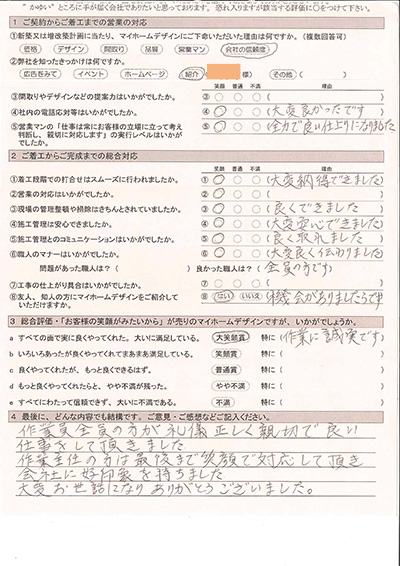 かゆい”ところに手が届く会社でありたいと思っております。恐れ入りますが該当する評価に○をつけて下さい。
1 ご契約からご着工までの営業の対応
①新築又は増改築計画に当たり、マイホームデザインにご下命いただいた理由は何ですか。（複数回答可）
価格 デザイン 間取り 品質 営業マン 会社の信頼度
②弊社を知ったきっかけは何ですか。
広告をみて イベント ホームページ 紹介 様） その他（ ）
笑顔 普通 不満 理由
③間取りやデザインなどの提案力はいかがでしたか。 ③ ○ ○ ○ （ ）
④社内の電話応対等はいかがでしたか。 ④ ○ ○ ○ （大変良かったです
⑤営業マンの「仕事は常にお客様の立場に立って考え ⑤ ○ ○ ○ （全力で良い仕上りになりました
判断し、親切に対応します」の実行レベルはいかが
でしたか。
2 ご着工からご完成までの総合対応
笑顔 普通 不満 理由
①着工段階での打合せはスムーズに行われましたか。 ① ○ ○ ○ （大変納得できました）
②営業の対応はいかがでしたか。 ② ○ ○ ○ （ ）
③現場の管理整頓や掃除はきちんとされていましたか。 ③ ○ ○ ○ （良くできました）
④施工管理は安心できましたか。 ④ ○ ○ ○ （大変安心できました）
⑤施工管理とのコミュニケーションはいかがでしたか。 ⑤ ○ ○ ○ （良く取れました）
⑥職人のマナーはいかがでしたか。 ⑥ ○ ○ ○ （大変良く伝わりました）
問題があった職人は？（ ） 良かった職人は？（全員の方です）
⑦工事の仕上がり具合はいかがでしたか。 ⑦ ○ ○ ○ （ ）
⑧友人、知人の方にマイホームデザインをご紹介して ⑧ はい いいえ （機会がありましたら
いただけますか。
3 総合評価・「お客様の笑顔がみたいから」が売りのマイホームデザインですが、いかがでしょうか。
a すべての面で実に良くやってくれた。大いに満足している。 大笑顔賞 特に（作業に誠実です）
b いろいろあったが良くやってくれてまあまあ満足している。 笑顔賞 特に（ ）
c 良くやってくれたが、もっと良くできるはず。 普通賞 特に（ ）
d もっと良くやってくれたらと、やや不満が残った。 やや不満 特に（ ）
e すべてにわたって信頼できず、大いに不満である。 不満 特に（ ）
4 最後に、どんな内容でも結構です。ご意見・ご感想などご記入ください。
作業員全員の方が礼儀正しく親切で良い
仕事をして頂きました
作業主任の方は最後まで笑顔で対応して頂き
会社に好印象を持ちました
大変お世話になりありがとうございました。